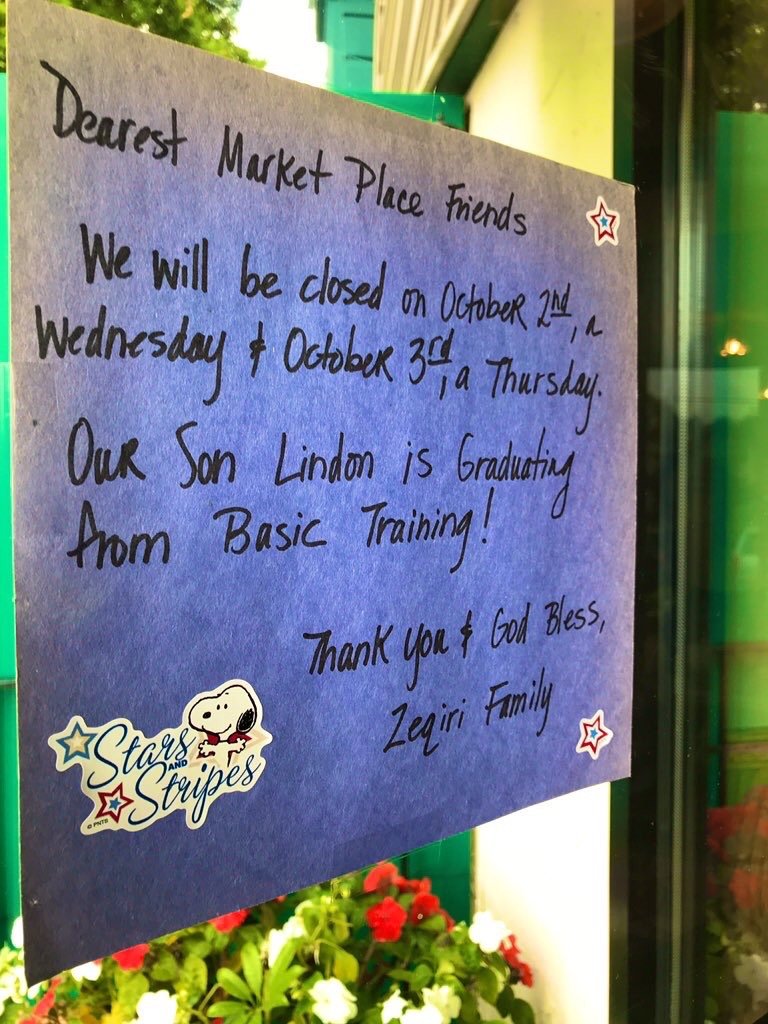 Dearest Market Place Friends
We will be closed on October 2nd, a
Wednesday & October 3rd, a Thursday.
Our Son Lindon is Graduating
from Basic Training!
Thank you & God Bless,
Zeqiri Family
Stars
AND
Stripes
© PNTS